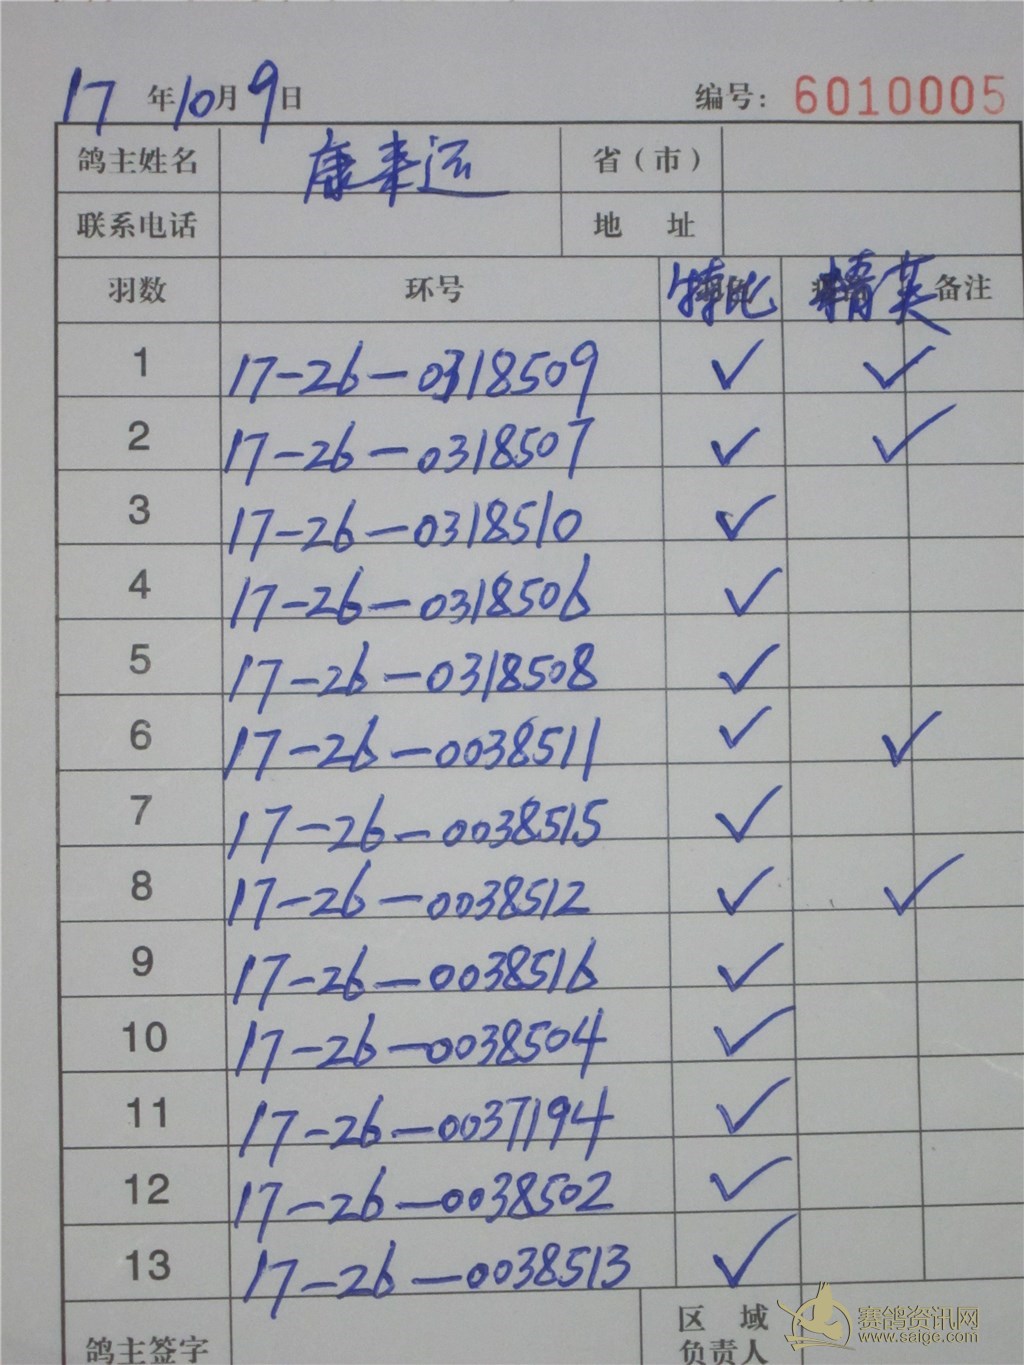 17 年 10 月 9 日 编号: 6010005
鸽主姓名 康来运 省(市)
联系电话 地 址
羽数 环号 特比 精英 备注
1 17-26-0318509 ✓ ✓
2 17-26-0318507 ✓ ✓
3 17-26-0318510 ✓
4 17-26-0318506 ✓
5 17-26-0318508 ✓
6 17-26-0038511 ✓ ✓
7 17-26-0038515 ✓
8 17-26-0038512 ✓ ✓
9 17-26-0038516 ✓
10 17-26-0038504 ✓
11 17-26-0037194 ✓
12 17-26-0038502 ✓
13 17-26-0038513 ✓
鸽主签字 区 域
负责人
赛鸽资讯网
www.saige.com